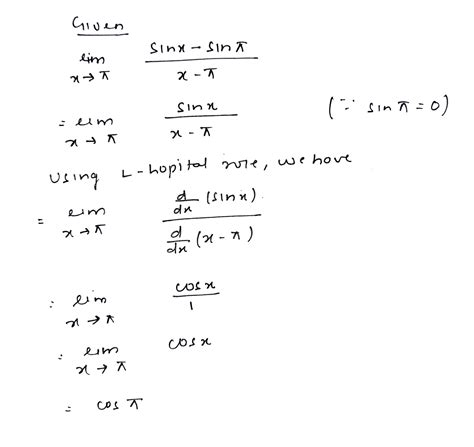 Given
lim x→π (sinx − sinπ)/(x − π)
= lim x→π sinx/(x − π) (∵ sinπ = 0)
Using L-hopital rule, we have
= lim x→π (d/dx (sinx))/(d/dx (x − π))
= lim x→π cosx/1
= lim x→π cosx
= cosπ